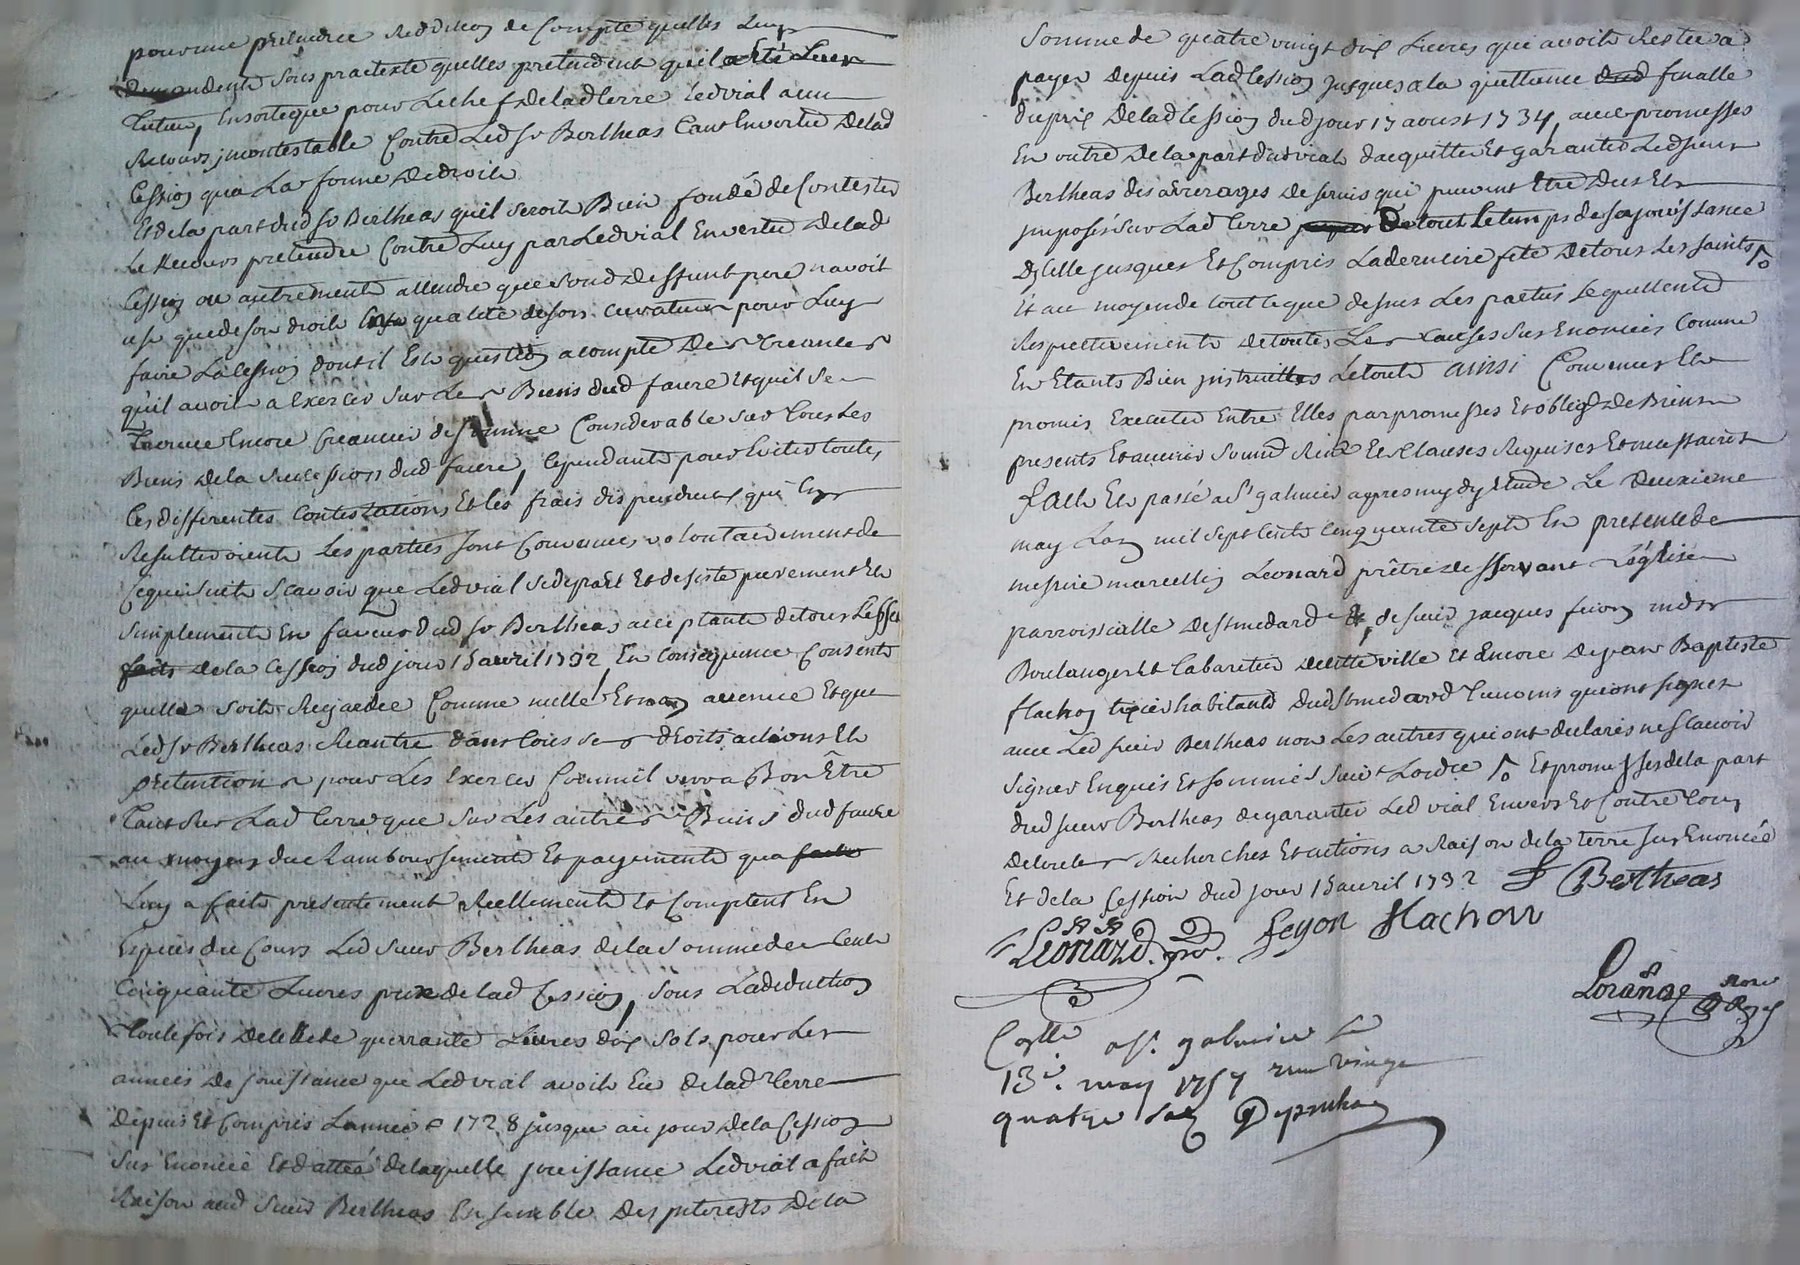 pour une prétendue Reddition de Compte qu'elles Luy
demandent sous praetexte quelles pretendent quil a Eté Leur
Tuteur, Ensorte que pour Le chef de lad Terre Led vial a un
Recours jncontestable Contre Led Sr Bertheas tant En vertu de lad
Cession qua La forme de droit
Et de la part dud Sr Bertheas quil seroit Bien fondé de Contester
Le Recours pretendu Contre Luy par Led vial En vertu de lad
Cession ou autrement attendre que sond deffunt pere n'avoit
usé que de son droit En qualité de son curateur pour Luy
faire La Cession dont il Est question a compte Des Creances
qu'il avoit a Exercer sur Les Biens dud faure Et quil se
trouve Encore Creancier de somme Considerable sur tous Les
Biens de la succession dud faure, Cependant pour Eviter toutes
Ces differentes Contestations Et les frais dispendieux qui En
Resulteroient Les parties sont Convenues volontairement de
Ce qui suit scavoir que Led vial se depart Et desiste purement Et
simplement En faveur dud Sr Bertheas acceptant de tous Les effets
faits de la Cession dud jour 15 avril 1732, En Consequence Consent
quelle soit Regardée Comme nulle Et non avenue Et que
Led Sr Bertheas Reantre dans tous ses droits actions Et
pretentions pour Les Exercer Comme il verra Bon Être
tant sur Lad Terre que sur Les autres Biens dud faure
au moyen du Rambourssement Et payement qua faits
Luy a fait presentement Réellement Et Comptent En
Espèces du Cours Led sieur Bertheas de la somme de Cent
Cinquante Livres prix de lad Cession, sous La deduction
toutefois de Celle de quarrante Livres dix sols pour Les
années de Jouissance que Led vial avoit Eu de lad Terre
depuis Et Compris L'année 1728 jusque au jour de la Cession
sus Enoncée Et dattée de laquelle jouissance Led vial a fait
Raison aud sieur Bertheas Ensemble des jnterests de la
somme de quatre vingt dix Livres qui avoit Restée a
payer depuis Lad Cession jusques a la quittance dud finalle
du prix de lad Cession dud jour 17 aoust 1734, avec promesses
En outre de la part dud vial d'acquitter Et garantir Led sieur
Bertheas des arrerages de servis qui peuvent Etre dus Et
jmposés sur Lad Terre jusques De tout Le temps de sa jouissance
d'jcelle jusques Et Compris La derniere fête de tous Les saints
Et au moyen de tout Ce que dessus Les parties se quittent
Respectivement de toutes Les Causes sus Enoncées Comme
En Etants Bien jnstruittes Le tout ainsi Convenu Et
promis Executer Entre Elles par promesses Et oblig. de Biens
presents Et avenir soumis Ren. Et Clauses Requises Et necessaires
fait Et passé a St galmier apres midy Etude Le deuxieme
may L'an mil sept Cent Cinquante sept En presence de
messire marcellin Leonard prêtre desservant L'église
parroissialle de St medard & de sieur jacques feion mdr
Boulanger Et Cabaretier de cette ville Et Encore de jean Baptiste
flachon habitant dud St medard temoins qui ont signés
avec Led sieur Bertheas non Les autres qui ont declarés ne scavoir
signer Enquis Et sommés suivt Lordce Et promesses de la part
dud sieur Bertheas de garantir Led vial Envers Et Contre tous
de toutes Recherches Et actions a Raison de la terre sus Enoncée
Et de la Cession dud jour 15 avril 1732 Bertheas
Leonard. ptre. feyon flachon
Lorange nore
Royal
Collé a St. galmier Le
13e. may 1757 reçu vingt
quatre sols